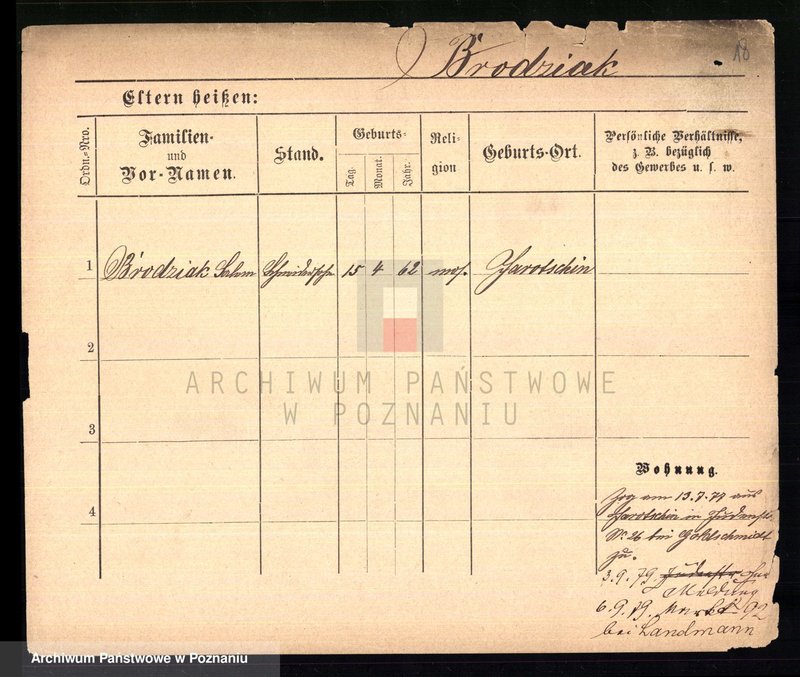 Brodziak 18
Eltern heißen:
Ordn.-Nro.
Familien-
und
Vor-Namen.
Stand.
Geburts-
Tag.
Monat.
Jahr.
Reli-
gion
Geburts-Ort.
Persönliche Verhältnisse,
z. B. bezüglich
des Gewerbes u. s. w.
1 Brodziak Salom 15 4 62 mos. Jarotschin
2
ARCHIWUM PAŃSTWOWE
W POZNANIU
3
Wohnung.
4
Zog am 13.7.79 aus
Jarotschin in Judenstr.
Nr. 26 bei Goldschmidt
zu.
3.9.79 Judenstr
Meldung
6.9.79 Markt 92
bei Landmann
Archiwum Państwowe w Poznaniu